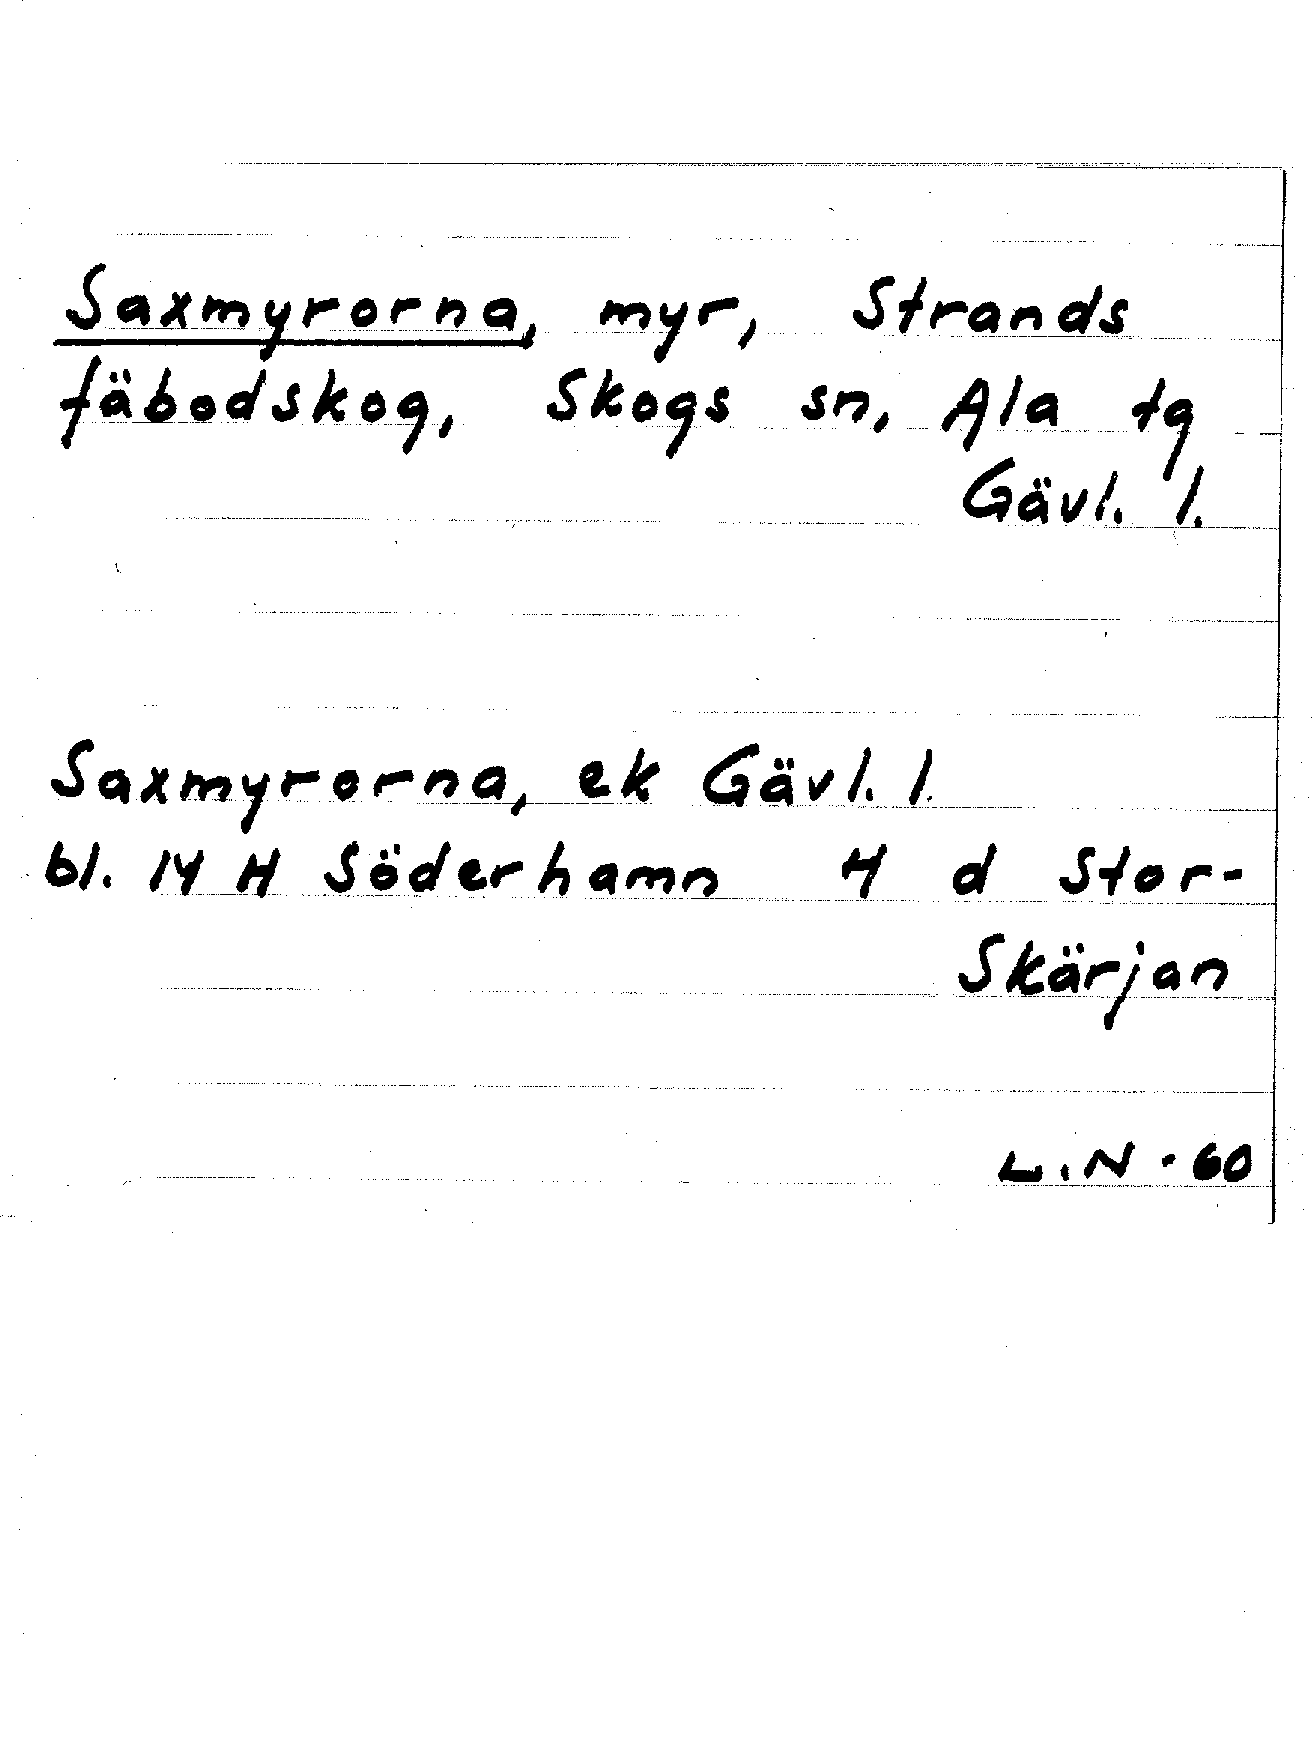 Saxmyrorna, myr, Strands
fäbodskog, Skogs sn, Ala tg
Gävl. l.
Saxmyrorna, ek Gävl. l.
bl. 14 H Söderhamn 4 d Stor-
Skärjan
L.N - 60